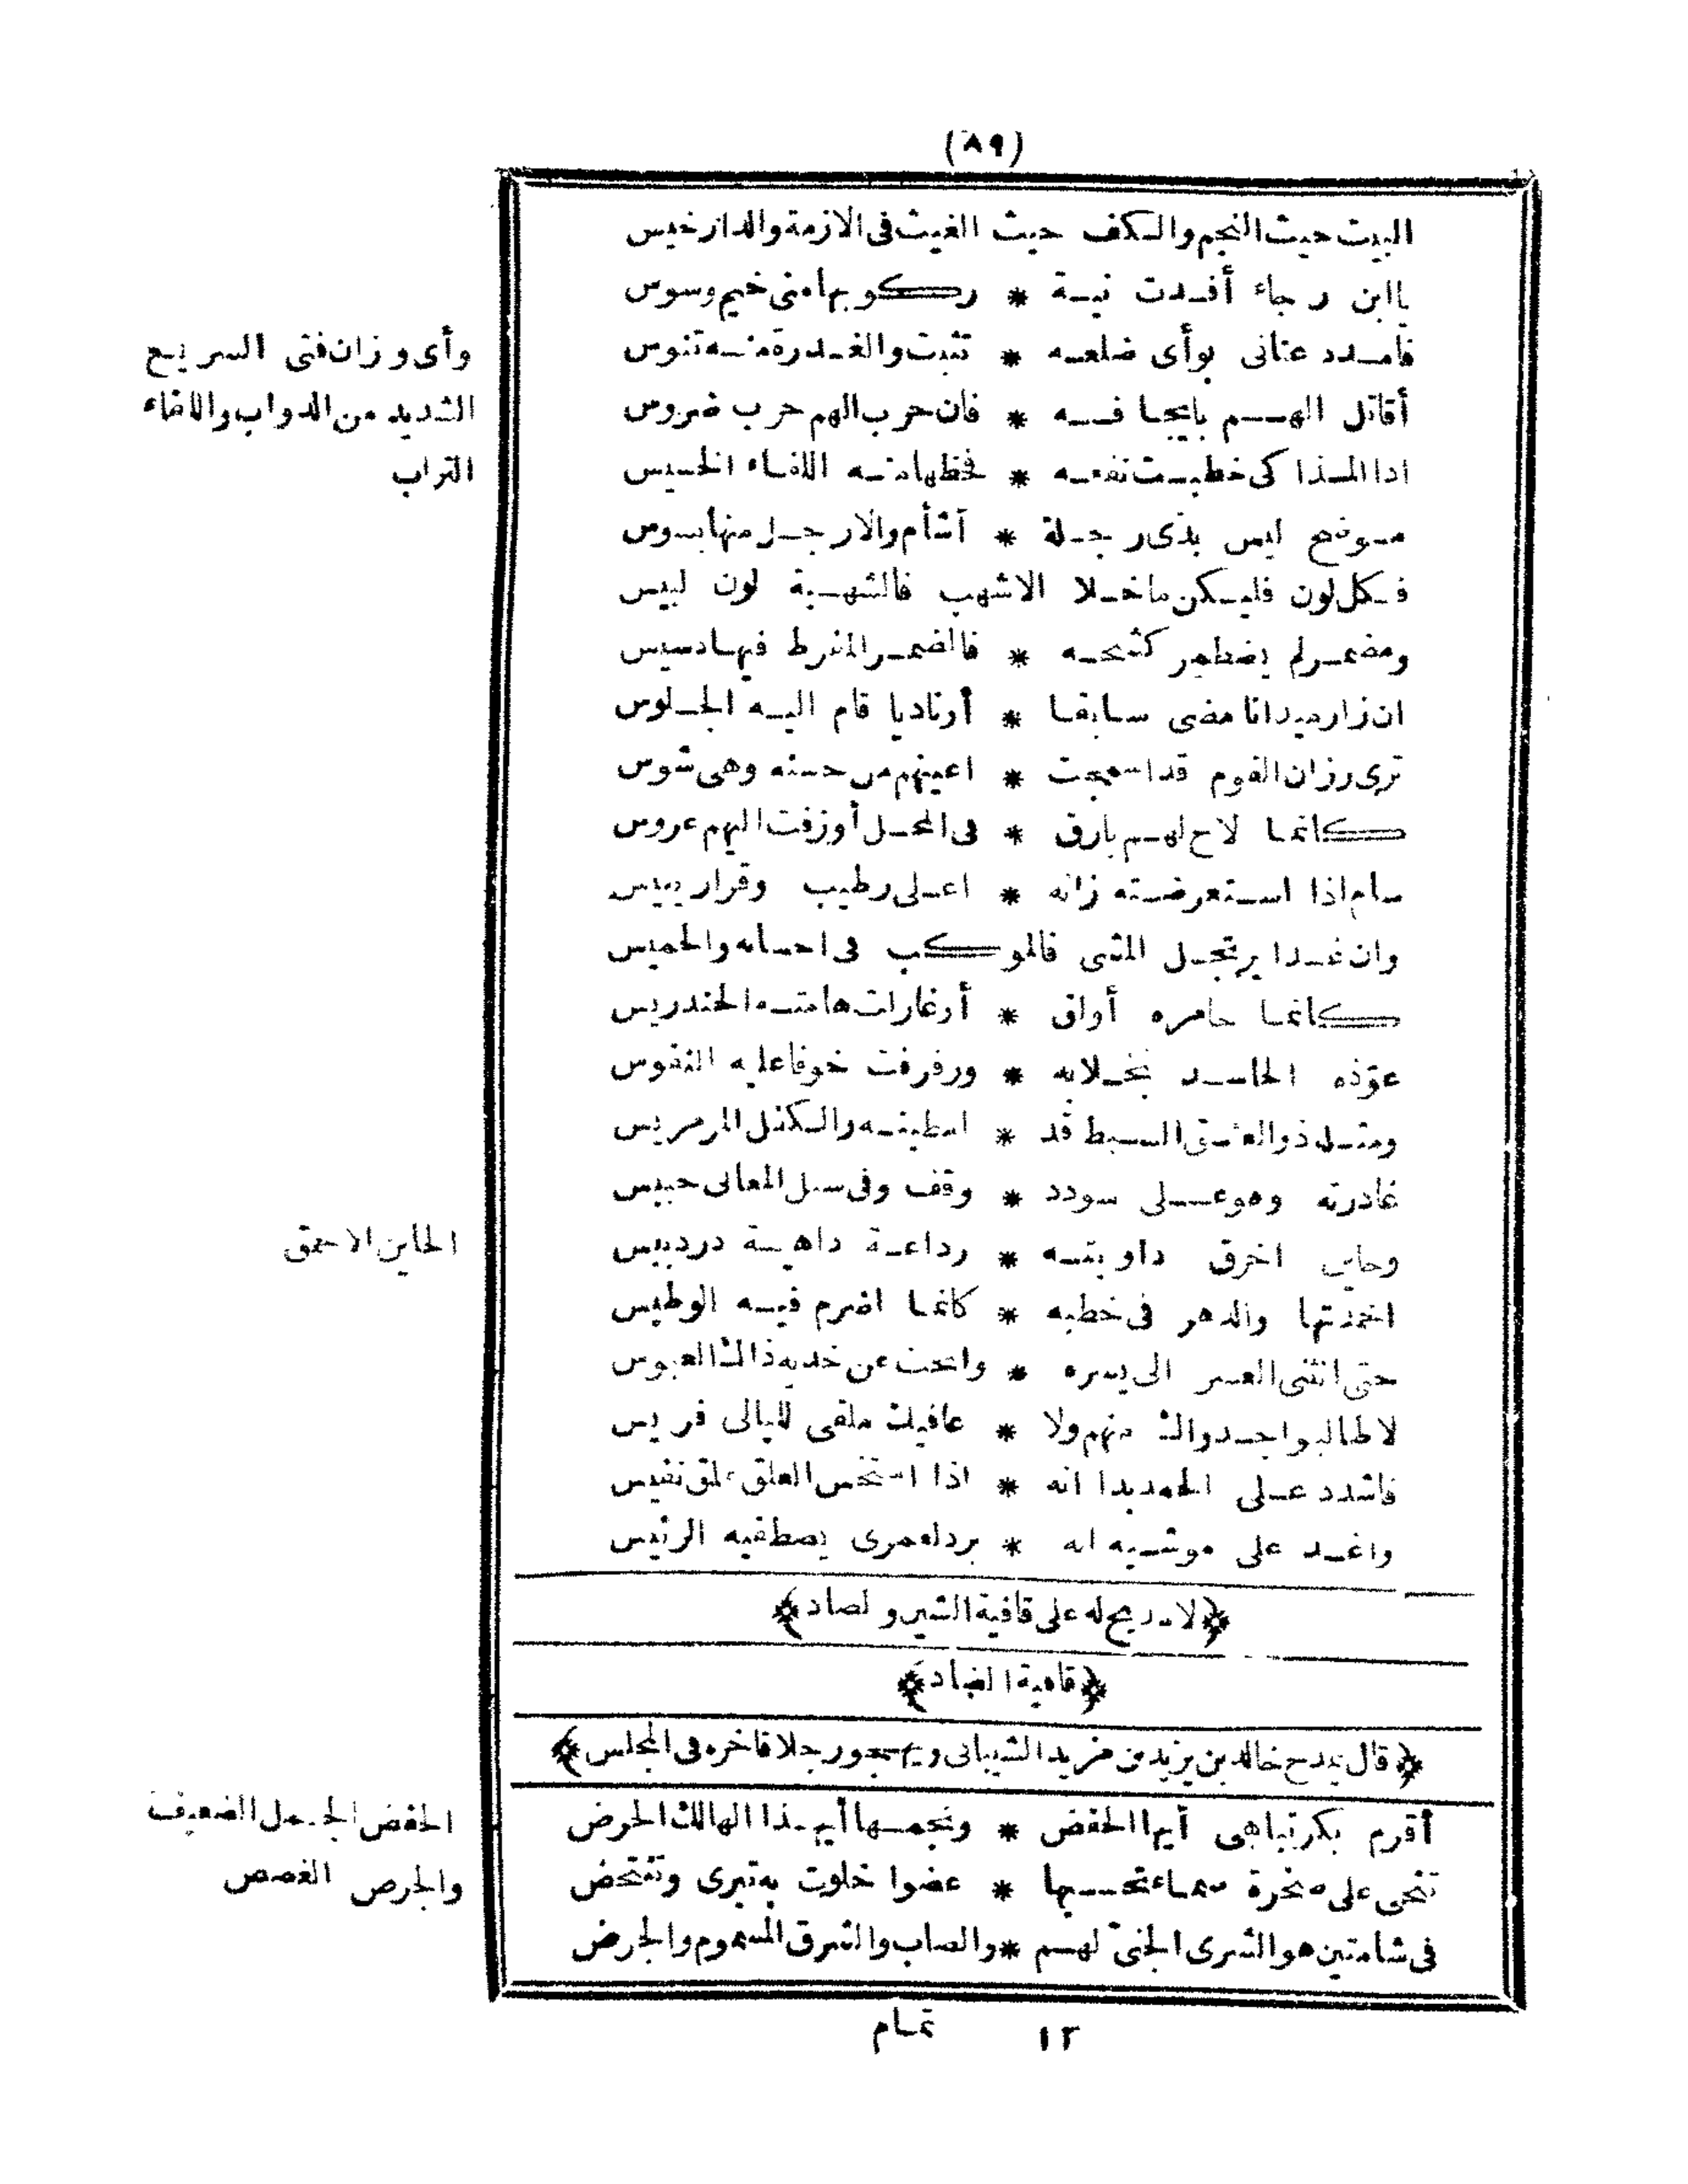 (٨٩)
البيت حيث النجم والكف حيث الغيث فى الازمة والدار خيس
ياابن رجاء أفدت نية * ركوبها منى خيم وسوس
فامدد عنانى بوأى ضلعه * تثبت والغدرة منه تنوس
أقاتل الهم بايجافه * فان حرب الهم حرب ضروس
اذا المذاكى خطبت نقعه * فحظها منه اللفاء الخسيس
موضح ليس بذى رجلة * أشأم والارجل منها بسوس
فكل لون فليكن ماخلا الاشهب فالشهبة لون لبيس
ومضمر لم يضطمر كشحه * فالضمر المفرط فيها رسيس
ان زار ميدانا مضى سابقا * أوناديا قام اليه الجلوس
ترى رزان القوم قد اسمجت * اعينهم من حسنه وهى شوس
كانما لاح لهم بارق * فى المحل أوزفت اليهم عروس
سام اذا استعرضته زانه * اعلى رطيب وقرار يبيس
وان غدا يرتجل المشى فالموكب فى احسانه والخميس
كانما خامره أولق * أوغارات هامته الخندريس
عوّذه الحاسد بخلابه * ورفرفت خوفا عليه النفوس
ومثل ذوالعنق السبط قد * امطيته والكفل المرمريس
غادرته وهو على سودد * وقف وفى سبل المعالى حبيس
وحاين اخرق داويته * رداعة داهية دردبيس
اخمدتها والدهر فى خطبه * كانما اضرم فيه الوطيس
حتى انثنى العسر الى يسره * وانحت عن خديه ذاك العبوس
لاطالبواجدواك منهم ولا * عافيك ملقى لليالى فريس
فاشدد على الحمديدا انه * اذا استخس العلق علق نفيس
واغد على موشيه انه * برد لعمرى يصطفيه الرئيس
﴿لامديح له على قافية الشين والصاد﴾
﴿قافية الضاد﴾
﴿قال يمدح خالد بن يزيد بن مزيد الشيبانى ويهجو رجلا فاخره فى المجلس﴾
أقرم بكر تباهى أيها الحفض * ونجمها أيهذا الهالك الحرض
تنحى على صخرة صماء تحسبها * عضوا خلوت به تبرى وتنتحض
فى شامتين هو الشرى الجنىّ لهم * والصاب والشرق المسموم والجرض
وأى وزان فتى السريع
الشديد من الدواب واللفاء
التراب
الحاين الاحمق
الحفض الجمل الضعيف
والجرص الغصص
١٢ تمام